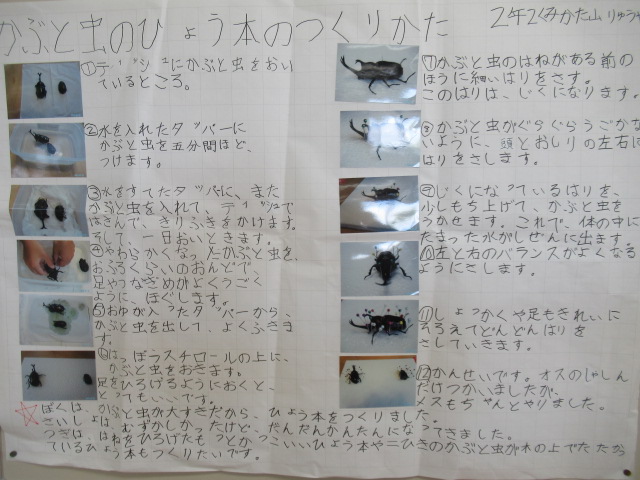 かぶと虫のひょう本のつくりかた
2年2くみかた山りゅう
①ティッシュにかぶと虫をおい
ているところ。
②水を入れたタッパーに
かぶと虫を五分間ほど、
つけます。
③水をすてたタッパに、また
かぶと虫を入れて、ティッシュで
はさんで、きりふきをかけます。
そして、一日おいときます。
④やわらかくなったかぶと虫を、
おふろくらいのおんどで、
足やつなぎめがよくうごく
ように、ほぐします。
⑤おゆが入ったタッパーから、
かぶと虫を出して、よくふきま
す。
⑥はっぽうスチロールの上に、
かぶと虫をおきます。
足をひろげるようにおくと、
とってもいいです。
⑦かぶと虫のはねがある前の
ほうに細いはりをさす。
このはりは、じくになります。
⑧かぶと虫がぐらぐらうごかな
いように、頭とおしりの左右に
はりをさします。
⑨じくになっているはりを、
少しもち上げて、かぶと虫を
うかせます。これで、体の中に
たまった水がしぜんに出ます。
⑩左と右のバランスがよくなる
ようにさします。
⑪しょっかくや足もきれいに
そろえてどんどんはりを
さしていきます。
⑫かんせいです。オスのしゃしん
だけつかいましたが、
メスもちゃんとやりました。
☆ぼくは、かぶと虫が大すきだから、ひょう本をつくりました。
さいしょは、むずかしかったけど、だんだんかんたんになってきました。
つぎは、はねをひろげたもっとかっこいいひょう本や二ひきのかぶと虫が木の上でたたかっ
ているひょう本もつくりたいです。